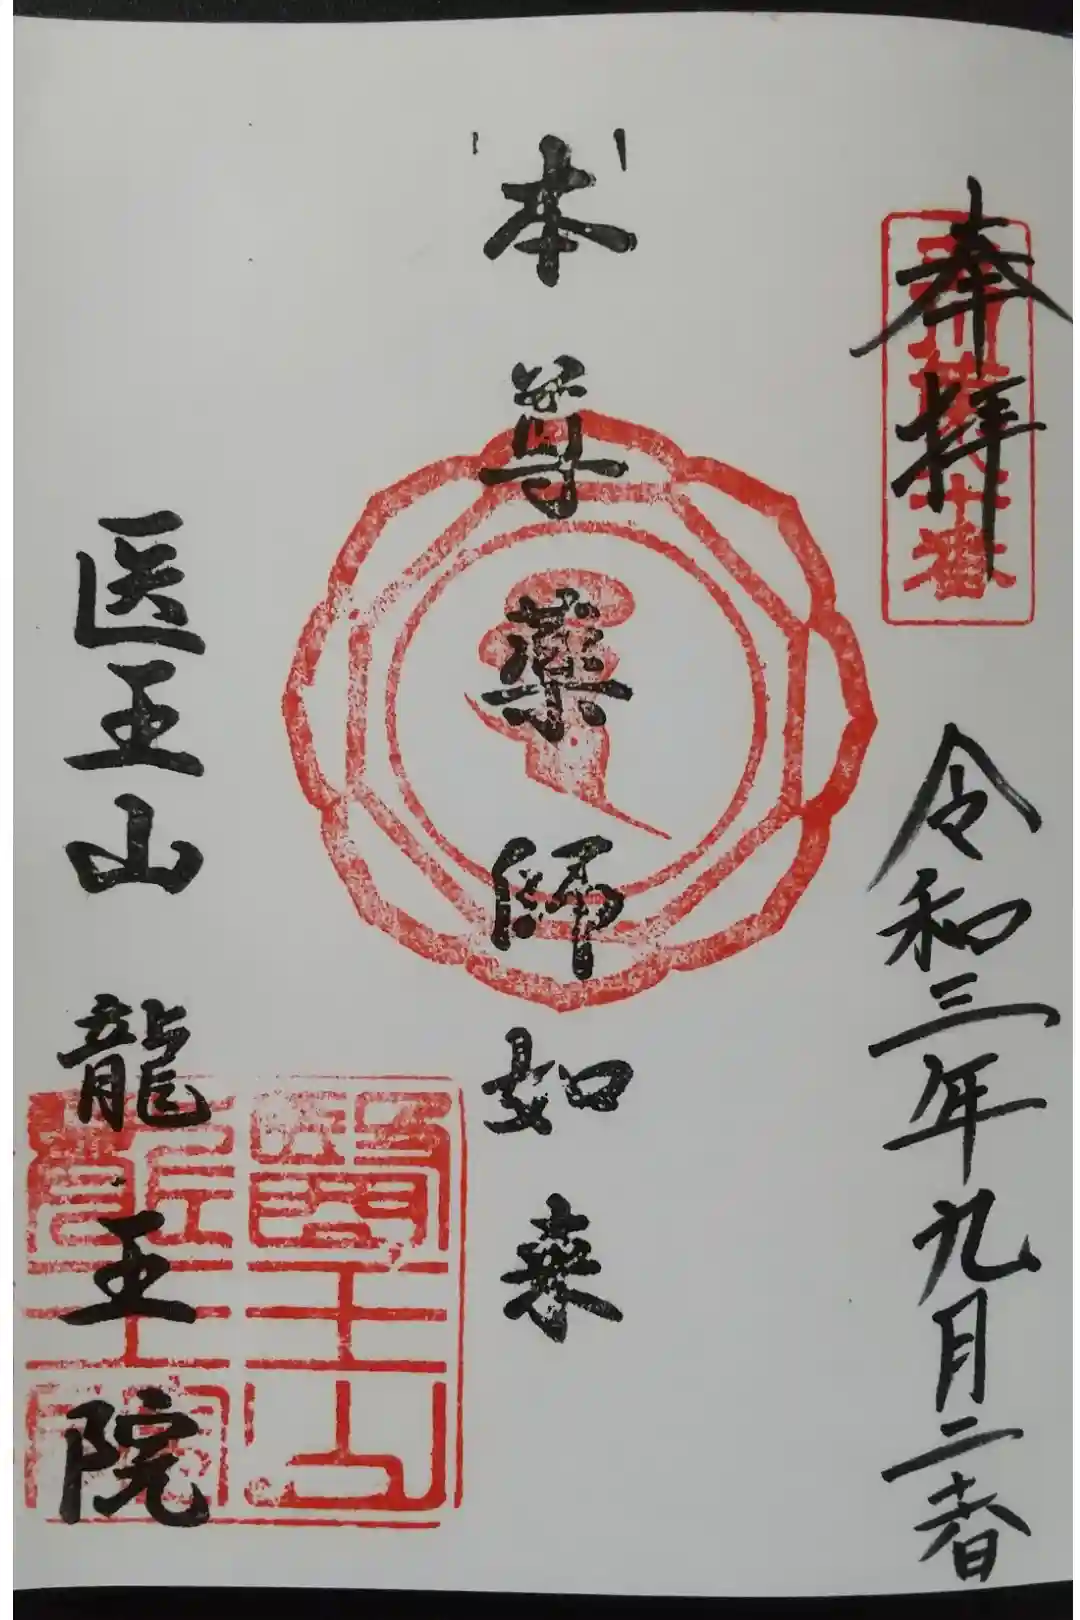 奉拝
令和三年九月二
本尊薬師如来
医王山龍王院
醫王山
龍王院